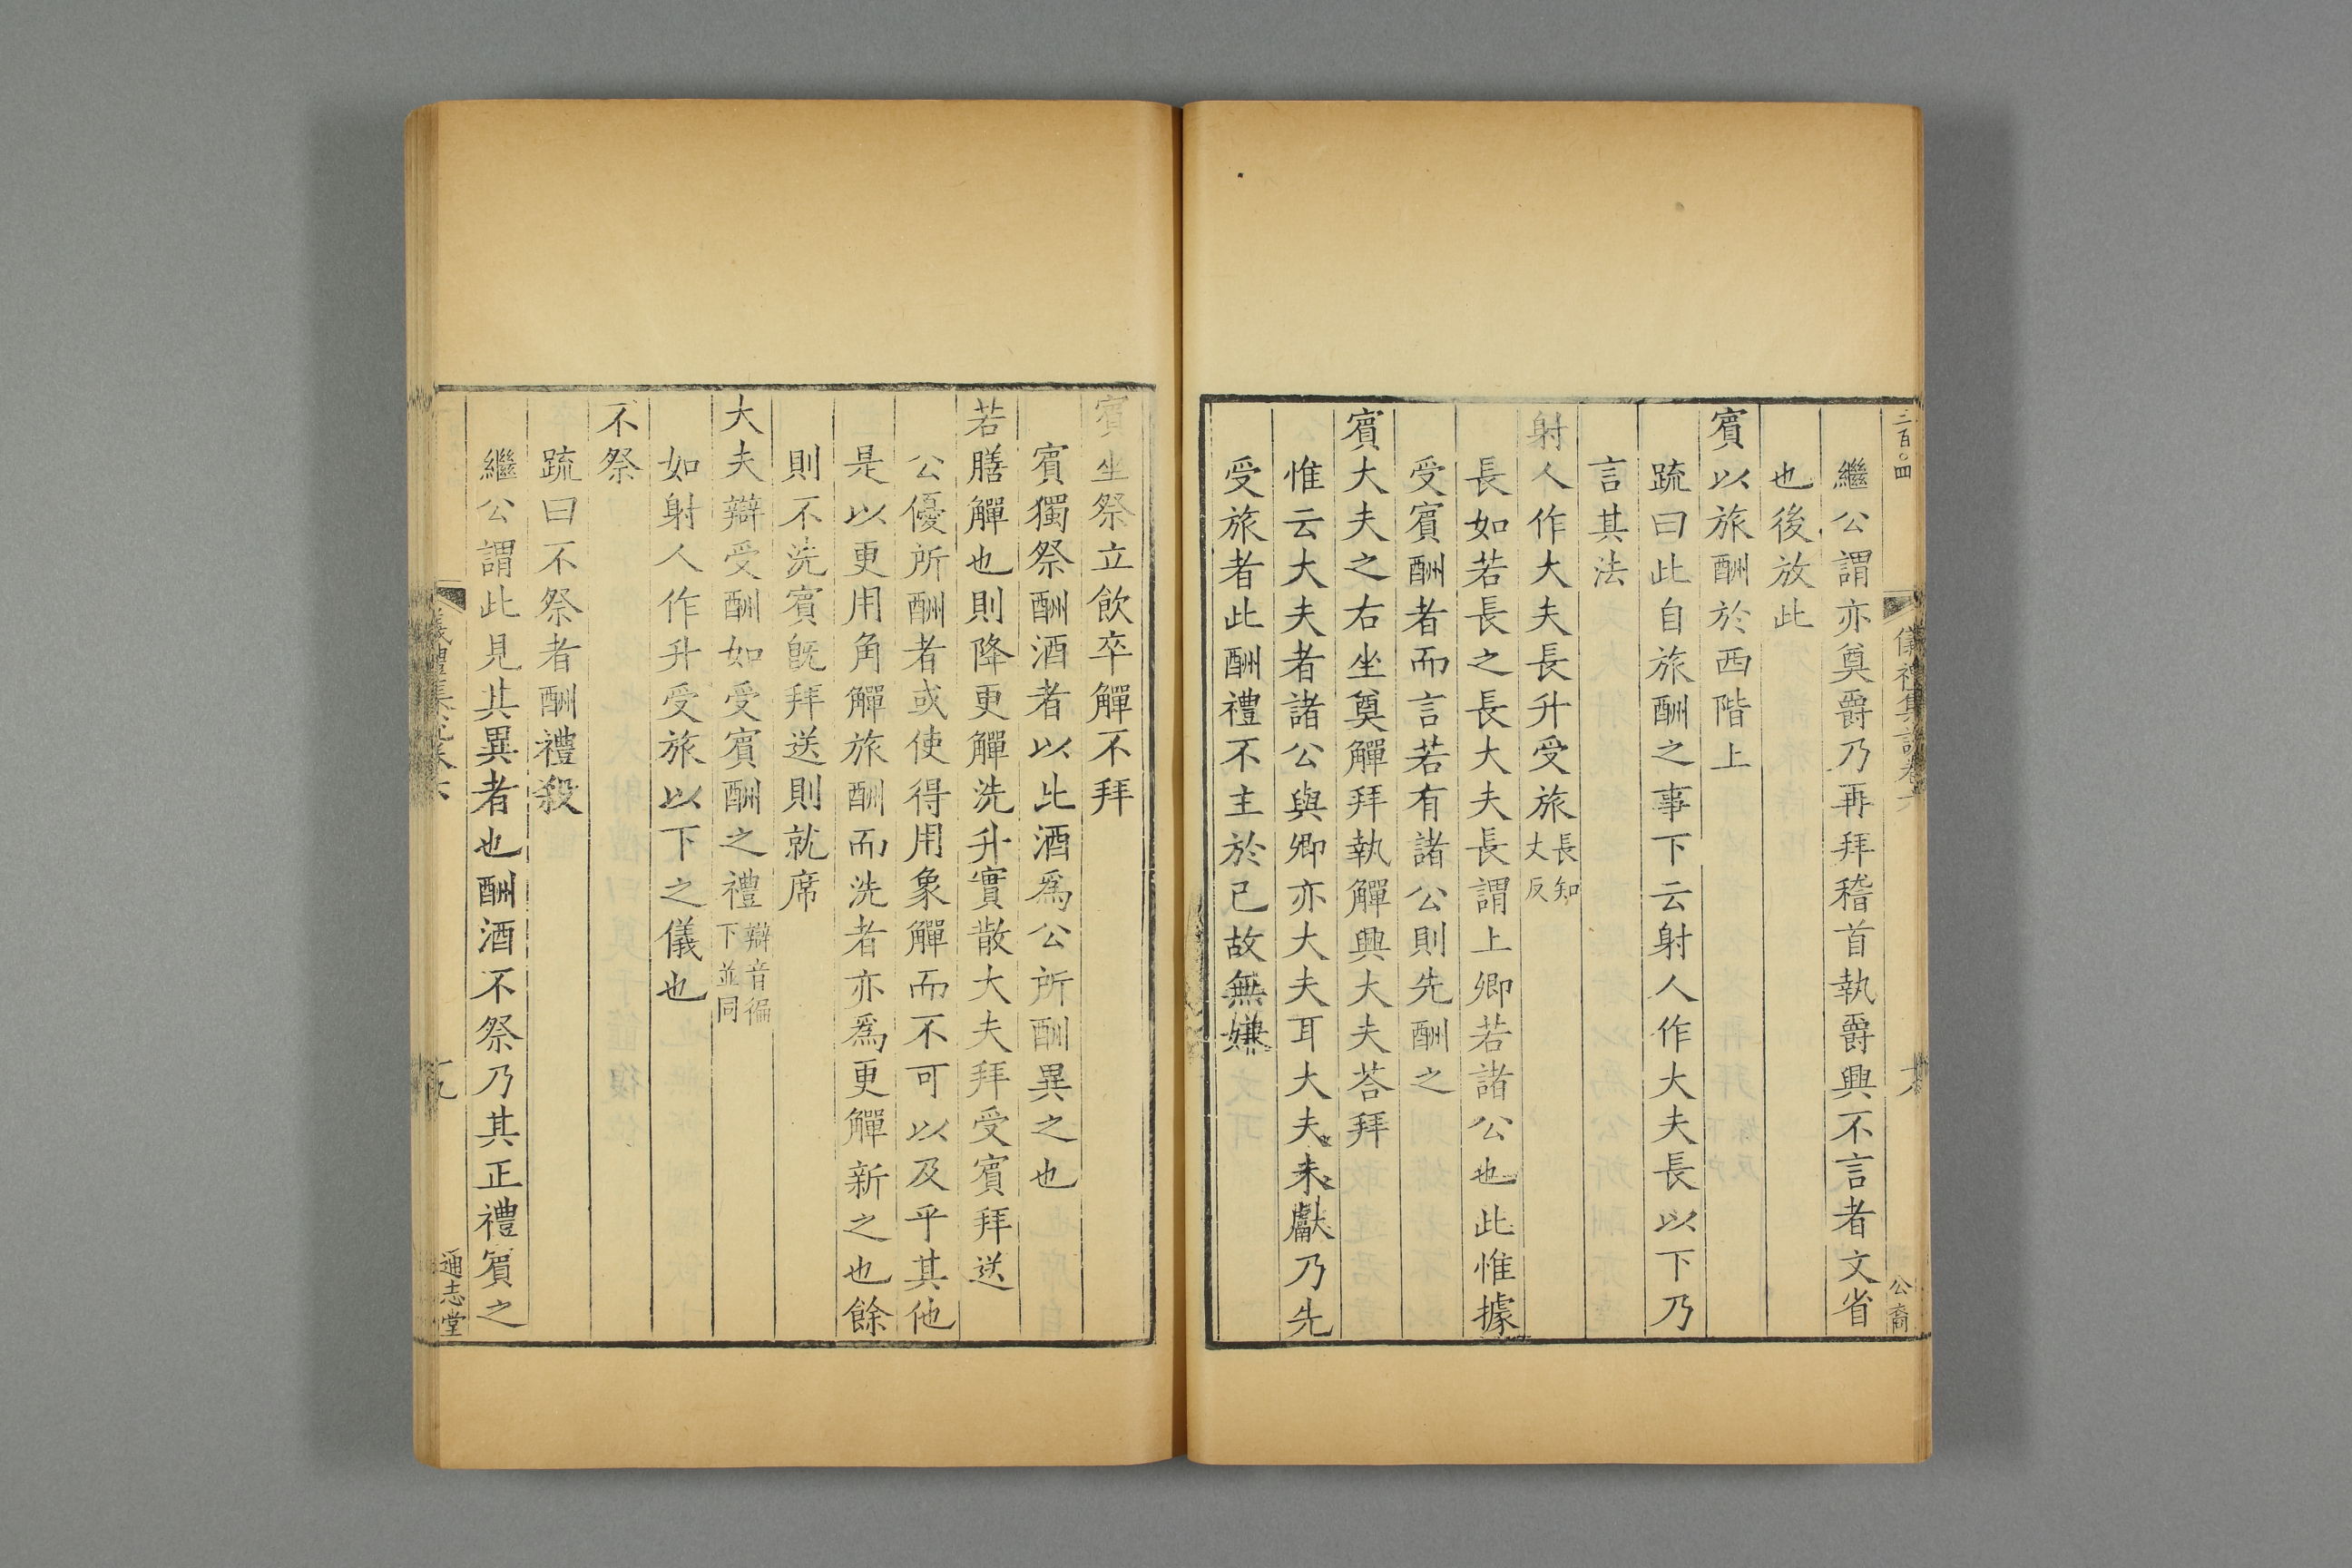 二百〇四
儀禮集說卷六
公裔
繼公謂亦奠爵乃再拜稽首執爵興不言者文省
也後放此
賓以旅酬於西階上
疏曰此自旅酬之事下云射人作大夫長以下乃
言其法
射人作大夫長升受旅長知丈反
長如若長之長大夫長謂上卿若諸公也此惟據
受賓酬者而言若有諸公則先酬之
賓大夫之右坐奠觶拜執觶興大夫荅拜
惟云大夫者諸公與卿亦大夫耳大夫未獻乃先
受旅者此酬禮不主於已故無嫌
賓坐祭立飲卒觶不拜
賓獨祭酬酒者以此酒爲公所酬異之也
若膳觶也則降更觶洗升實散大夫拜受賓拜送
公優所酬者或使得用象觶而不可以及乎其他
是以更用角觶旅酬而洗者亦爲更觶新之也餘
則不洗賓旣拜送則就席
大夫辯受酬如受賓酬之禮辯音徧下並同
如射人作升受旅以下之儀也
不祭
疏曰不祭者酬禮殺
繼公謂此見其異者也酬酒不祭乃其正禮賓之
儀禮集說卷六
十九
通志堂